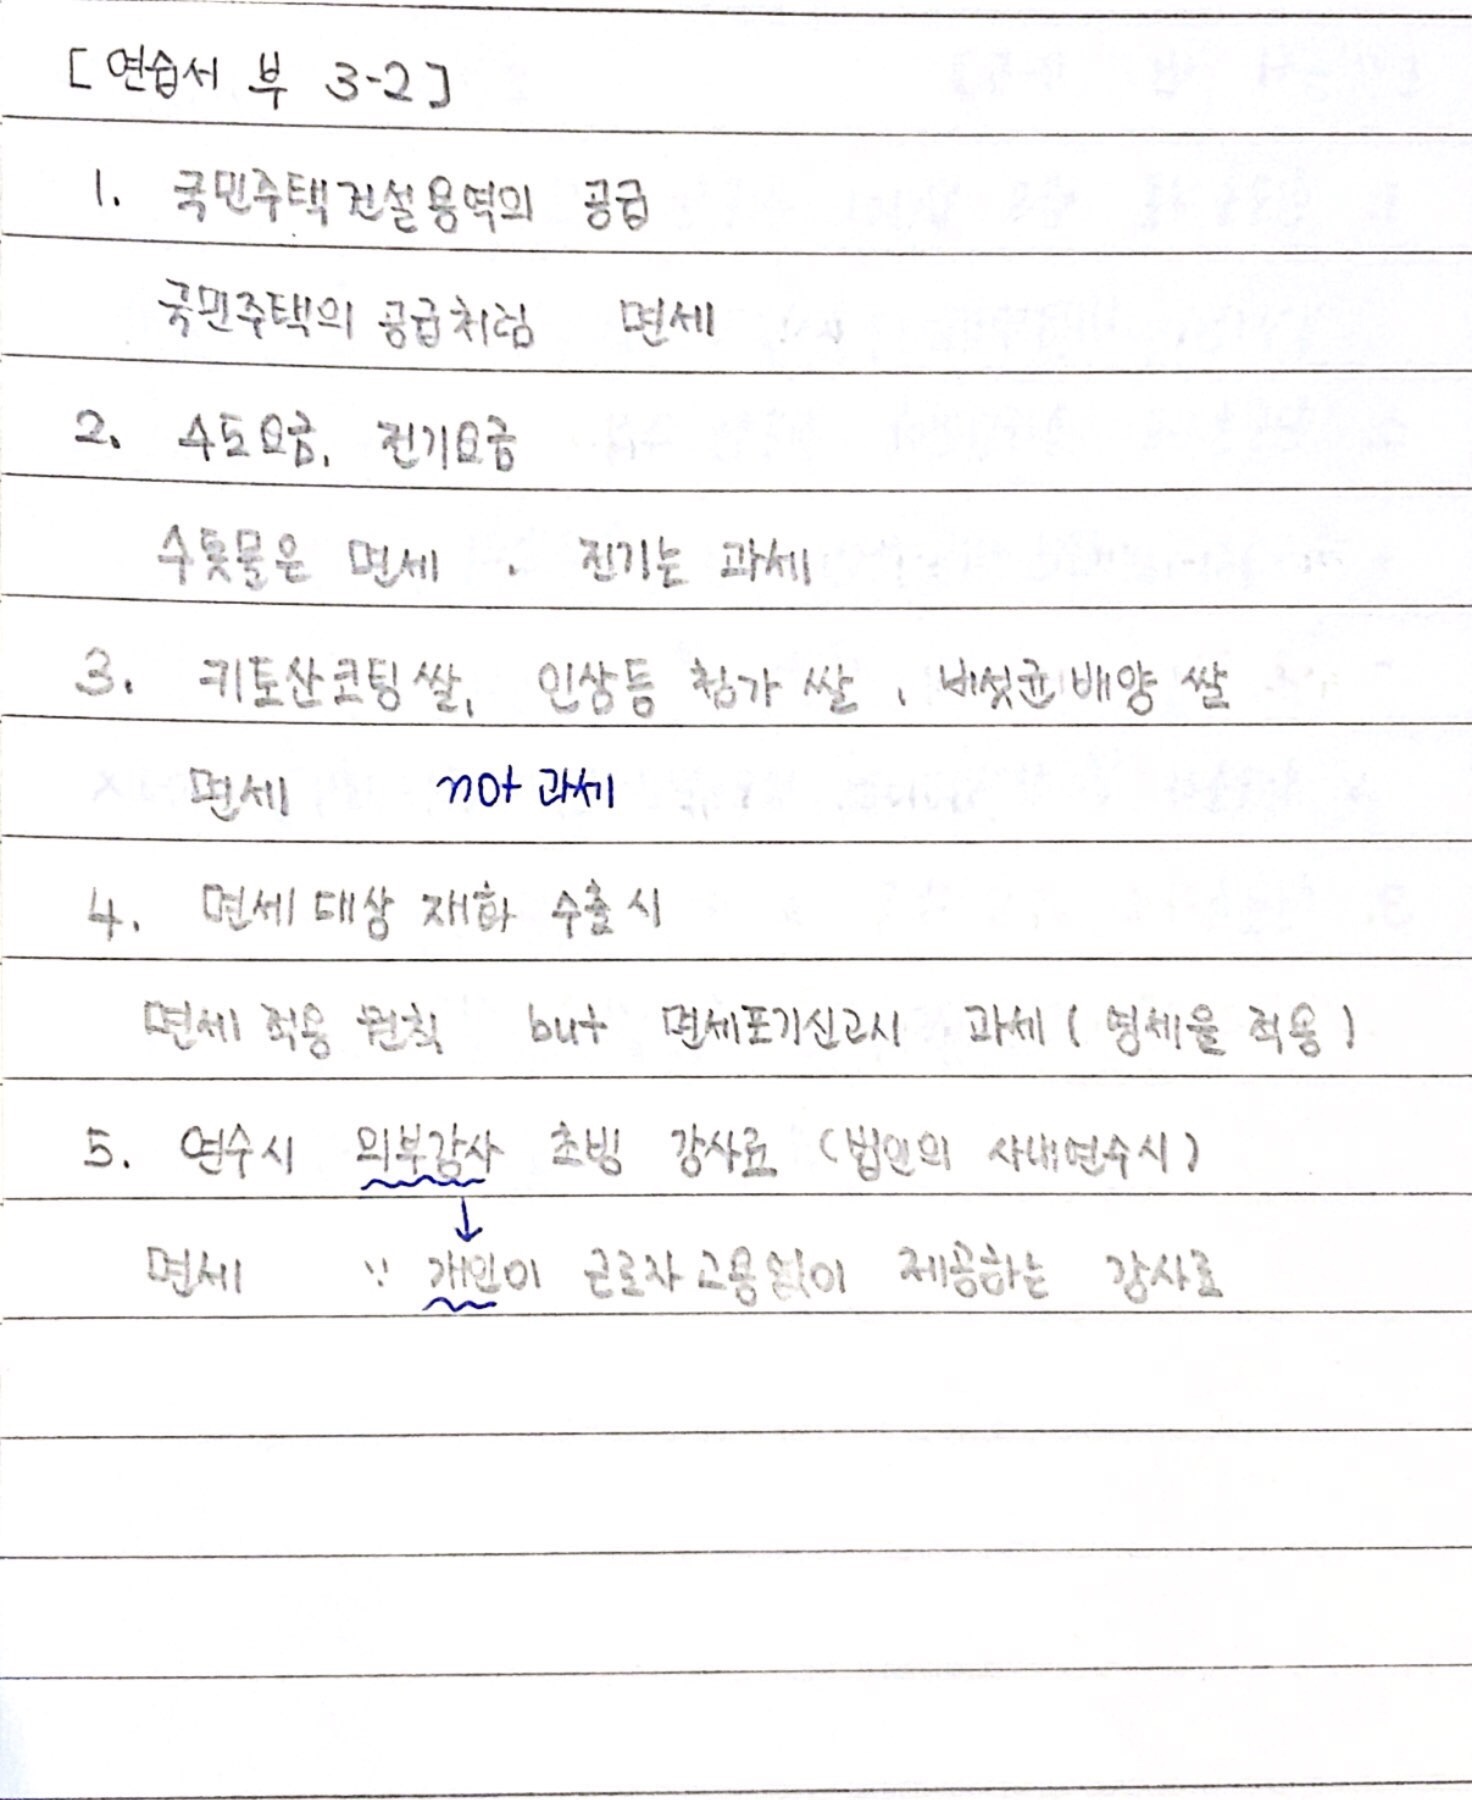 [연습서 부 3-2]
1. 국민주택건설용역의 공급
국민주택의 공급처럼 면세
2. 수도요금, 전기요금
수돗물은 면세, 전기는 과세
3. 키토산코팅쌀, 인삼등 첨가 쌀, 버섯균배양 쌀
면세 not 과세
4. 면세대상 재화 수출시
면세 적용 원칙 but 면세포기신고시 과세 (영세율 적용)
5. 연수시 외부강사 초빙 강사료 (법인의 사내연수시)
↓
면세 ∵ 개인이 근로자고용없이 제공하는 강사료